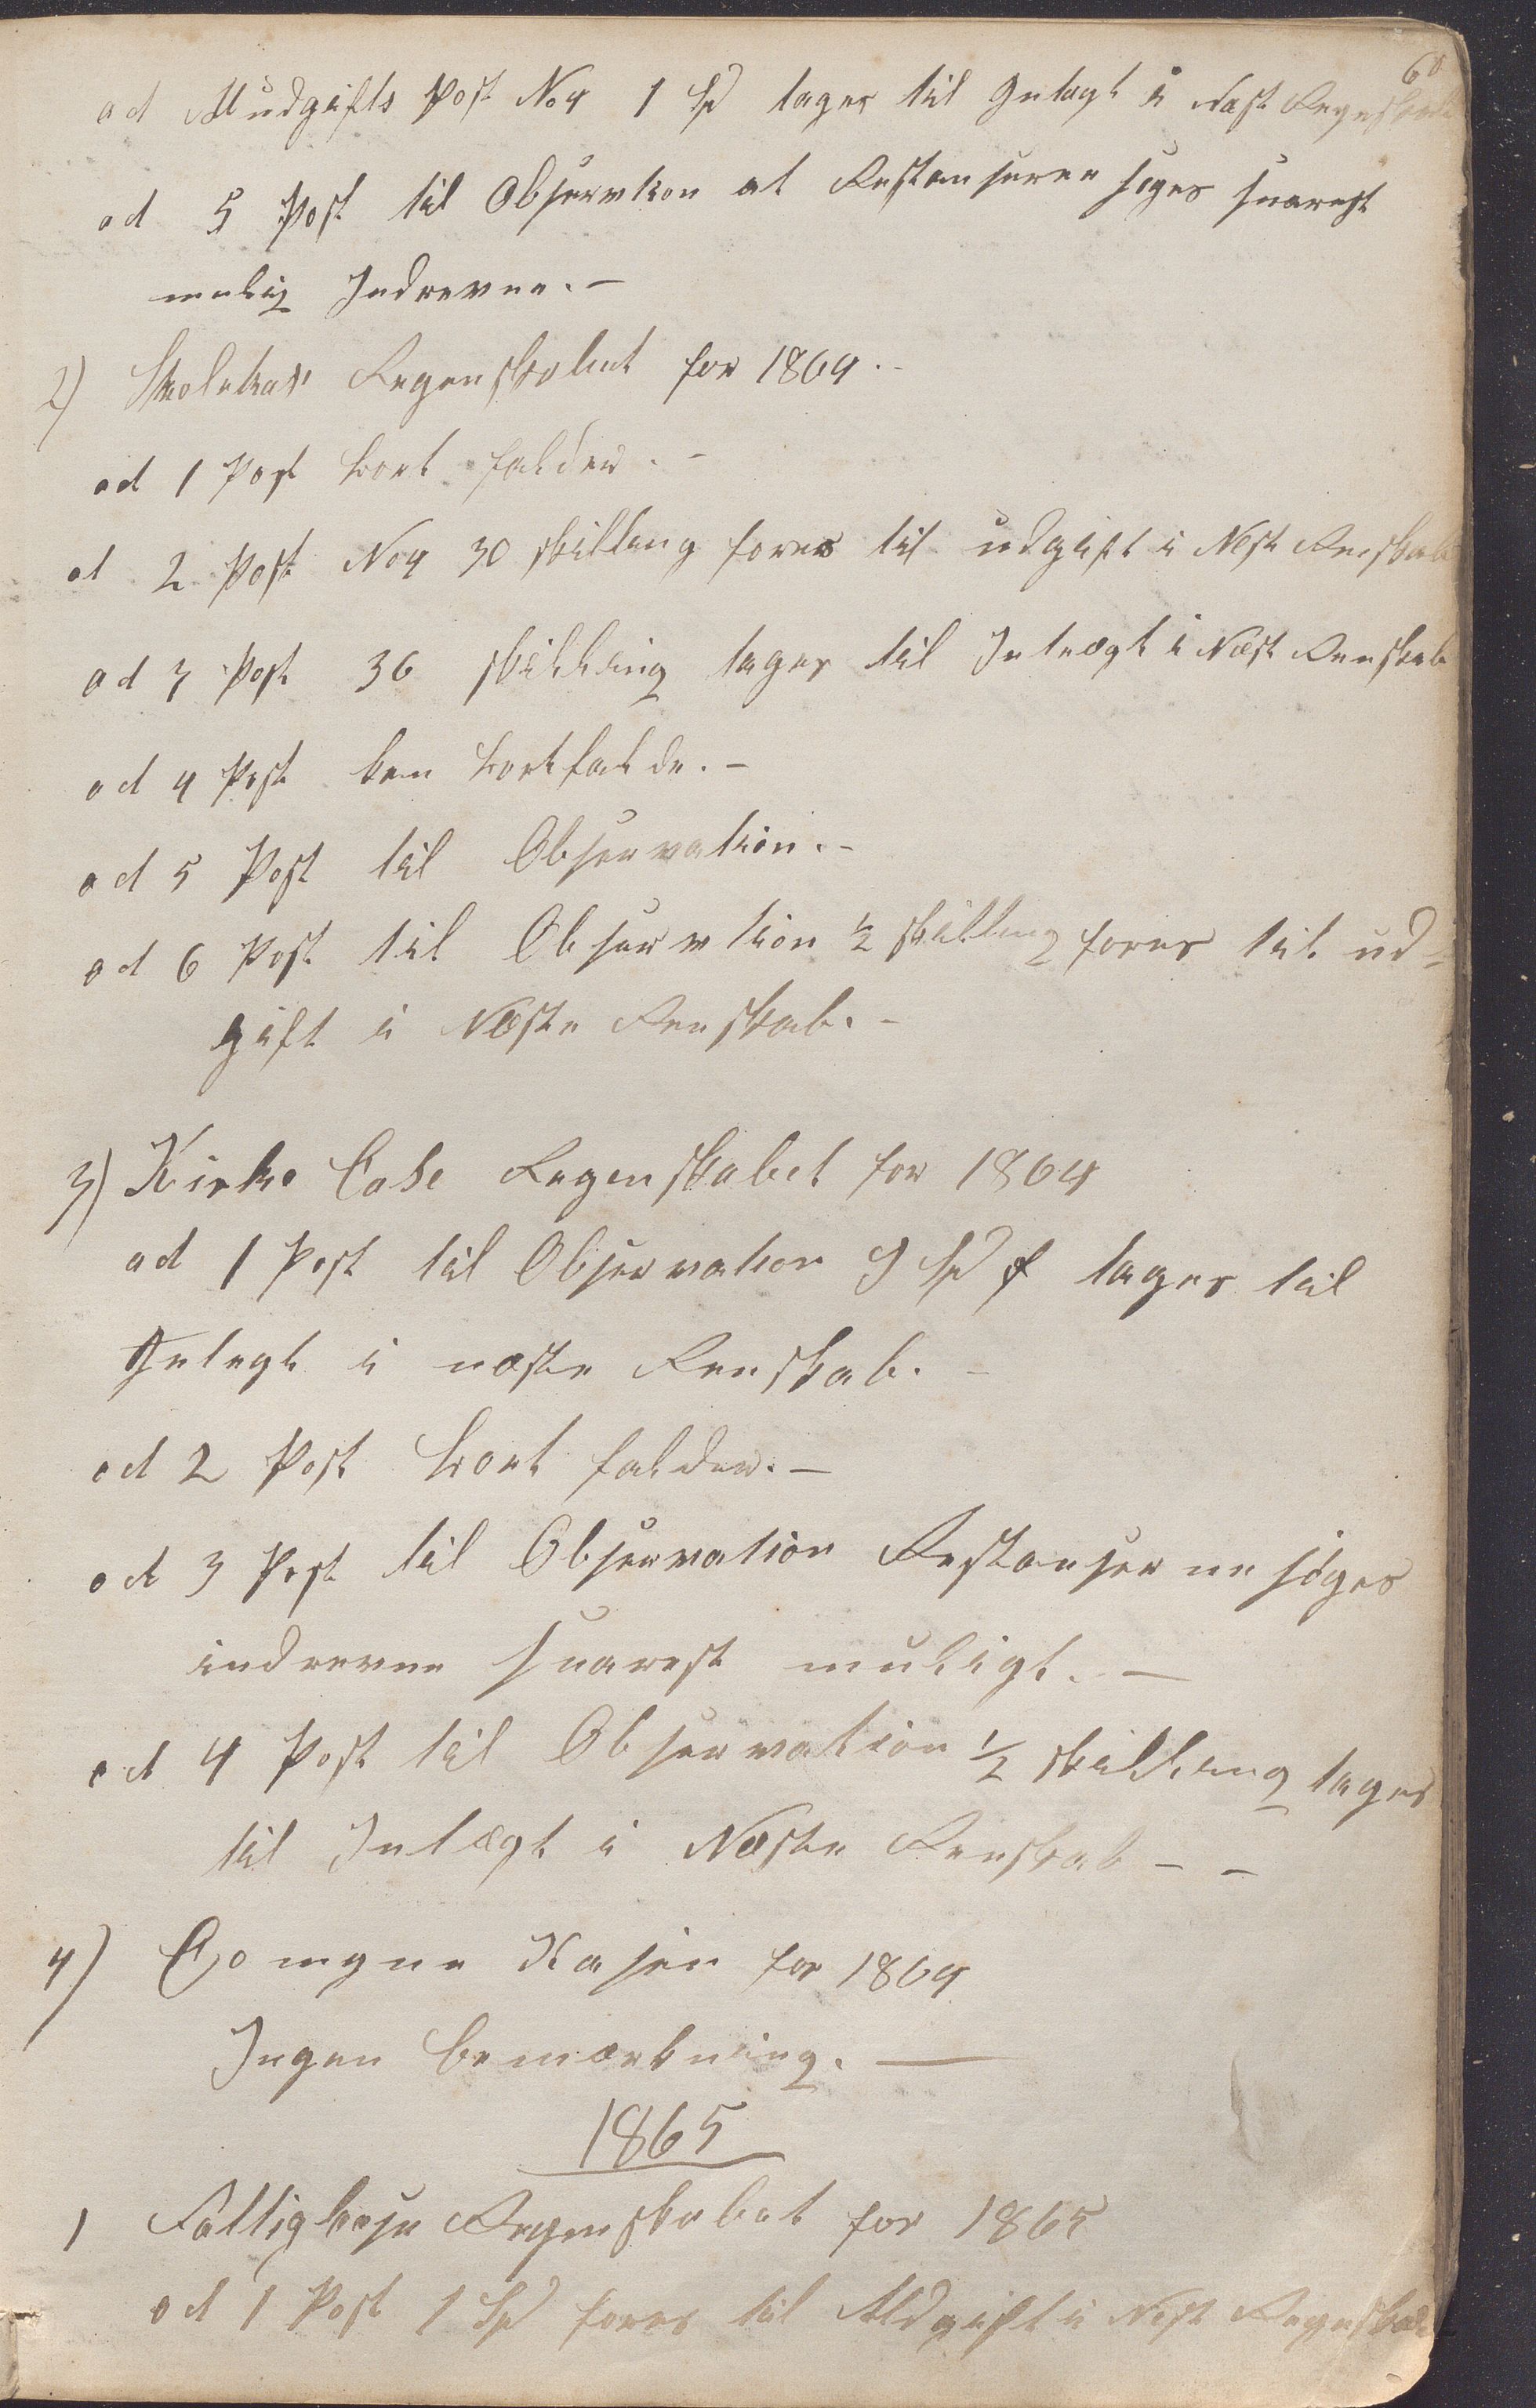 60
ad udgifts Post No 4 1 Spd tages til Intægt i Næst Regnskab
ad 5 Post til Observtion at Restanserne søges snarest
mulig Indrevne. –
2) Skolekas Regenskabet for 1864. –
ad 1 Post bort falder. –
ad 2 Post No 4 30 skilling fores til udgift i Nest Renskab
ad 3 Post 36 skilling tages til Intægt i Næst Renskab
ad 4 Post kan bortfalde. –
ad 5 Post til Observation. –
ad 6 Post til Observtion ½ skilling fores til ud-
gift i Næste Renskab. –
3) Kirke Case Regenskabet for 1864
ad 1 Post til Observation 9 Spd tages til
Integt i næste Renskab. –
ad 2 Post bort falder. –
ad 3 Post til Observation Restanserne søges
indrevne snarest muligt. –
ad 4 Post til Observation ½ skilling tages
til Intægt i Næste Renskab – –
4) Comyne Kasen for 1864
Ingen bemærkning. –
1865
1 Fattigkase Regenskabet for 1865
ad 1 Post 1 Spd fores til Udgift i Nest Regnskab